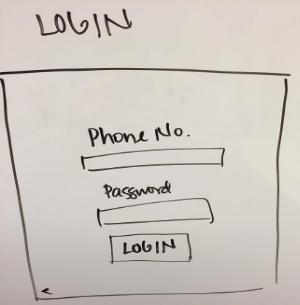 LOGIN
Phone No.
Password
LOGIN